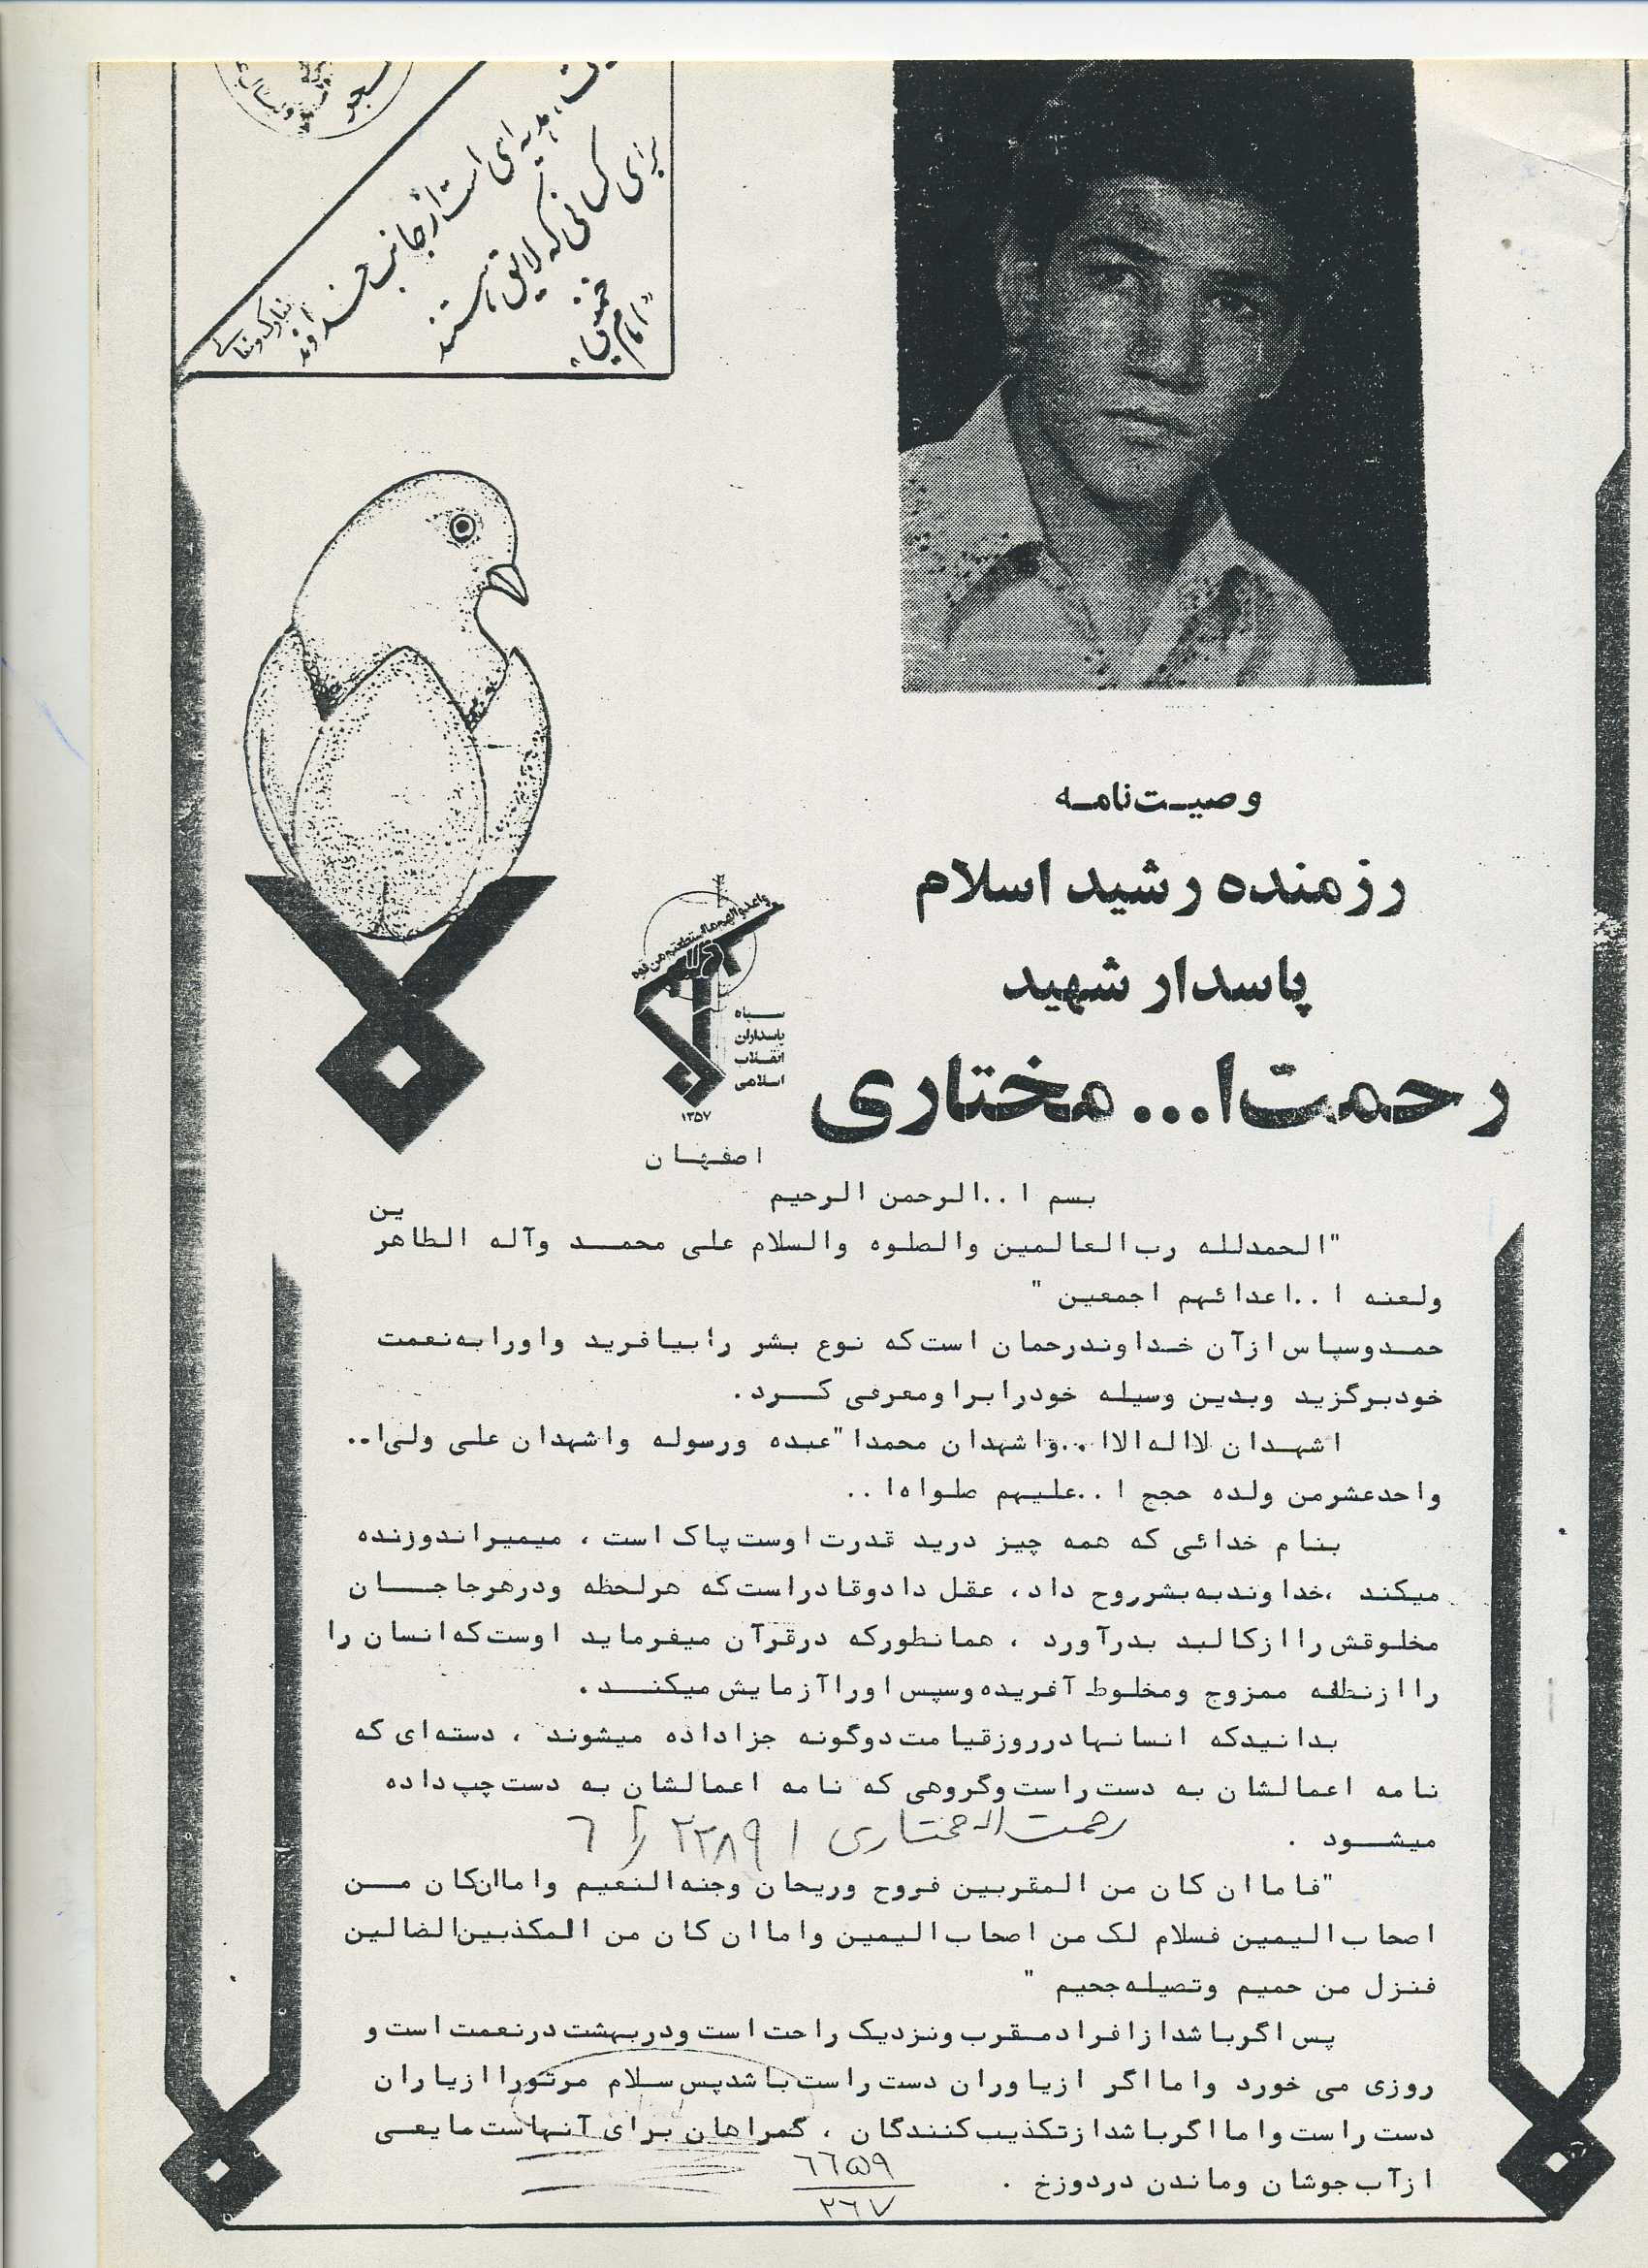 هدیه‌ای است از جانب خداوند
تبارک و تعالی
برای کسانی که لایق هستند
"امام خمینی"
وصیت‌نامه
رزمنده رشید اسلام
پاسدار شهید
رحمت‌ا... مختاری
واعدوالهم ما استطعتم من قوه
سپاه
پاسداران
انقلاب
اسلامی
۱۳۵۷
اصفهان
بسم ا..الرحمن الرحیم
"الحمدلله رب‌العالمین والصلوه والسلام علی محمد وآله الطاهرین
ولعنه ا..اعدائهم اجمعین "
حمدوسپاس ازآن خداوندرحمان است‌که نوع بشر رابیافرید واورابه‌نعمت
خودبرگزید وبدین وسیله خودرابراومعرفی کرد.
اشهدان لااله‌الاا..واشهدان محمدا"عبده ورسوله واشهدان علی ولی‌ا..
واحدعشرمن ولده حجج ا..علیهم صلواه‌ا..
بنام خدائی که همه چیز درید قدرت اوست‌پاک است ، میمیراندوزنده
میکند ،خداوندبه‌بشرروح داد، عقل دادوقادراست‌که هرلحظه ودرهرجاجان
مخلوقش راازکالبد بدرآورد ، همانطورکه درقرآن میفرماید اوست‌که‌انسان را
راازنطفه ممزوج ومخلوط آفریده‌وسپس اوراآزمایش میکند.
بدانیدکه انسانهادرروزقیامت‌دوگونه جزاداده میشوند ، دسته‌ای که
نامه اعمالشان به دست‌راست‌وگروهی که نامه اعمالشان به دست‌چپ‌داده
میشود .
رحمت اله مختاری
"فاماان کان من المقربین فروح وریحان وجنه‌النعیم واماان‌کان من
اصحاب‌الیمین فسلام لک من اصحاب‌الیمین واماان کان من المکذبین‌الضالین
فنزل من حمیم وتصیله‌جحیم "
پس اگرباشدازافرادمقرب‌ونزدیک راحت‌است ودربهشت‌درنعمت‌است‌و
روزی می خورد وامااگر ازیاوران دست‌راست‌باشدپس‌سلام مرتوراازیاران
دست‌راست‌وامااگرباشدازتکذیب‌کنندگان ، گمراهان برای آنهاست‌مایعی
ازآب‌جوشان وماندن دردوزخ .
٦٦٥٩
٢٦٧